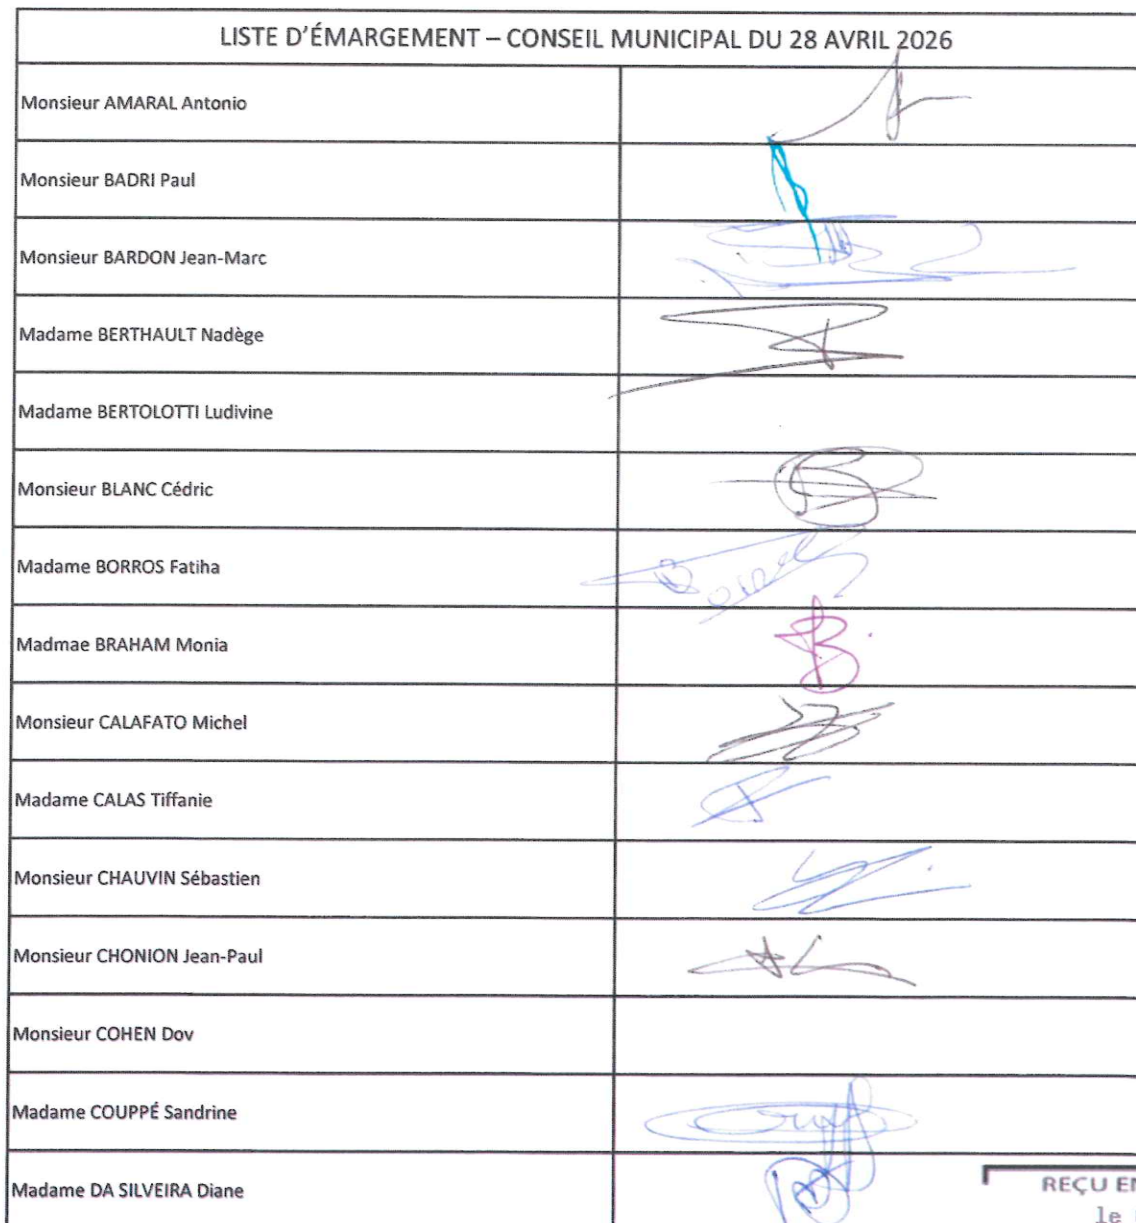 LISTE D'ÉMARGEMENT – CONSEIL MUNICIPAL DU 28 AVRIL 2026
Monsieur AMARAL Antonio
Monsieur BADRI Paul
Monsieur BARDON Jean-Marc
Madame BERTHAULT Nadège
Madame BERTOLOTTI Ludivine
Monsieur BLANC Cédric
Madame BORROS Fatiha
Madmae BRAHAM Monia
Monsieur CALAFATO Michel
Madame CALAS Tiffanie
Monsieur CHAUVIN Sébastien
Monsieur CHONION Jean-Paul
Monsieur COHEN Dov
Madame COUPPÉ Sandrine
Madame DA SILVEIRA Diane
REÇU EN
le